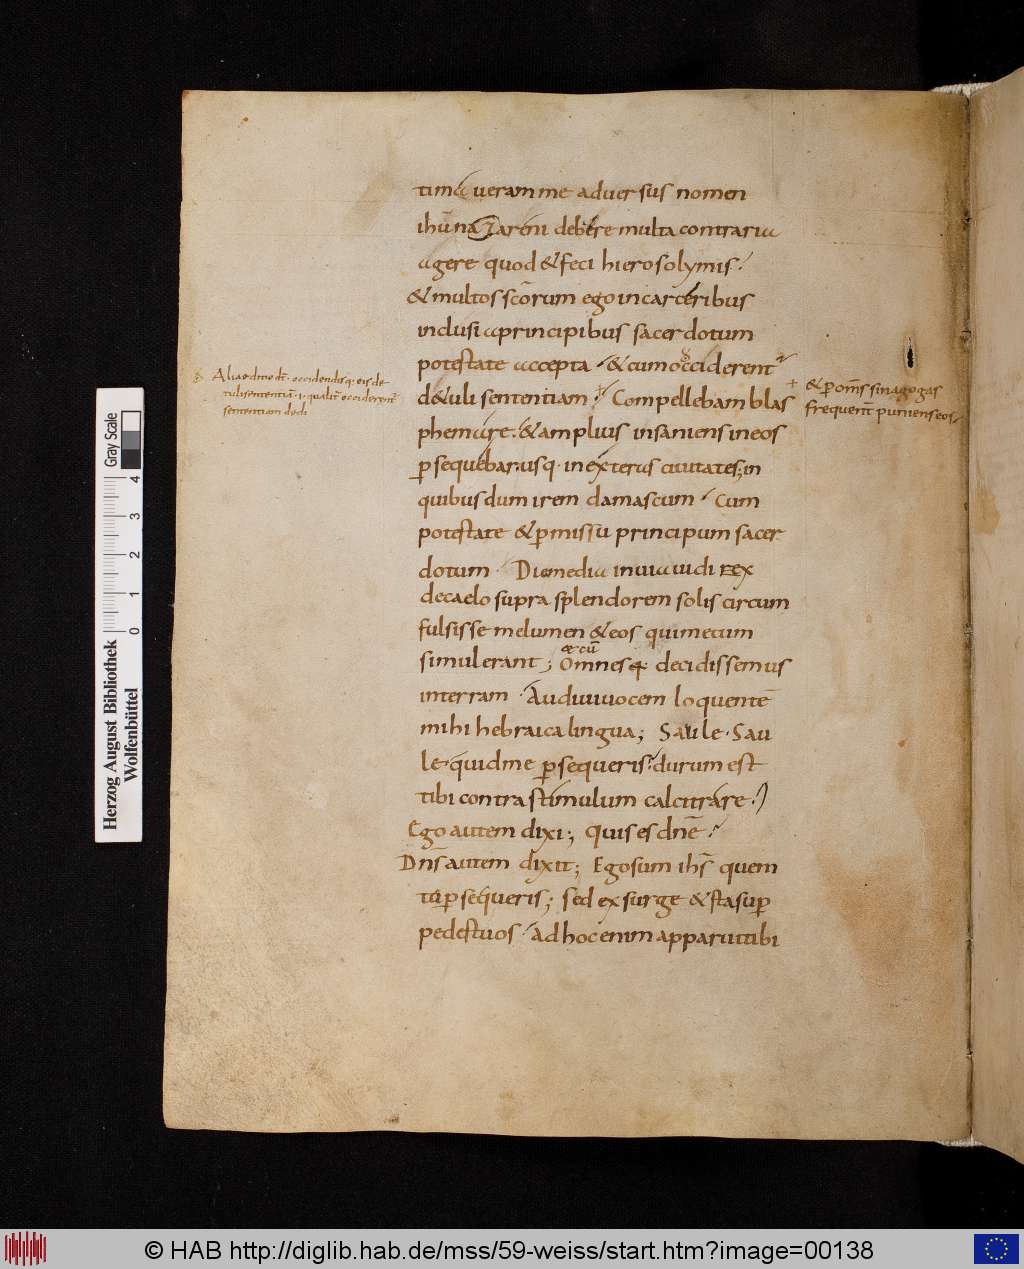 timaueram me aduersus nomen
ihū nazareni debere multa contraria
agere quod & feci hierosolymis
& multos scōrum ego in carceribus
inclusi a principibus sacerdotum
potestate accepta & cum occiderent
d&uli sententiam Compellebam blas
phemare. & amplius insaniens in eos
psequebar usq· in exteras ciuitates; in
quibus dum irem damascum Cum
potestate & pmissu principum sacer
dotum· Die media in uia uidi rex
decaelo supra splendorem solis circum
fulsisse me lumen & eos qui mecum
æ cū
simul erant; Omnesq· decidissemus
in terram · Audiui uocem loquentē
mihi hebraica lingua; Saule · Sau
le · quid me psequeris? durum est
tibi contra stimulum calcitrare·
Ego autem dixi; quis es dnē
Dn̄s autem dixit; Ego sum ihs̄ quem
tu psequeris; sed exsurge & sta sup
pedes tuos · Ad hoc enim apparui tibi
Alia editio dt̄· occidendisq· eis de
tuli sententiā ·i· qualit̄ occiderent̄
sententiam dedi
+ & p om̄s sinagogas
frequent̄ puniens eos
Gray Scale
0 1 2 3 4
Herzog August Bibliothek
Wolfenbüttel
© HAB http://diglib.hab.de/mss/59-weiss/start.htm?image=00138